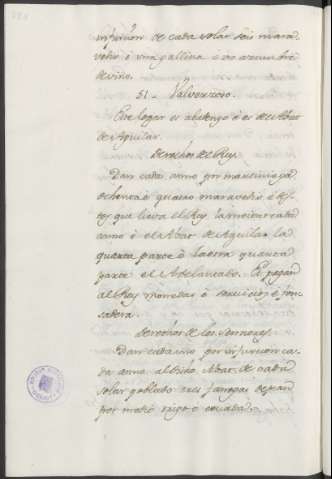 infurcion de cada solar seis mara
vedis è una gallina è un
de vino.
51. Valverzoso.
Este logar es abadengo è es del Abat
de Aguilar.
Derechos del Rey.
Dan cada anno por martiniega
ochenta è quatro maravedis è des
tos que lieva el Rey la meitat cada
anno è el Abat de Aguilar la
quarta parte è la otra quarta
parte el Adelantado. Et pagan
al Rey monedas è servicios è fon
sadera.
Derechos de los Sennores
Dan cada uno por infurcion ca
da anno al dicho Abat de cada
solar poblado tres fanegas de pan
por medio trigo è cevada.